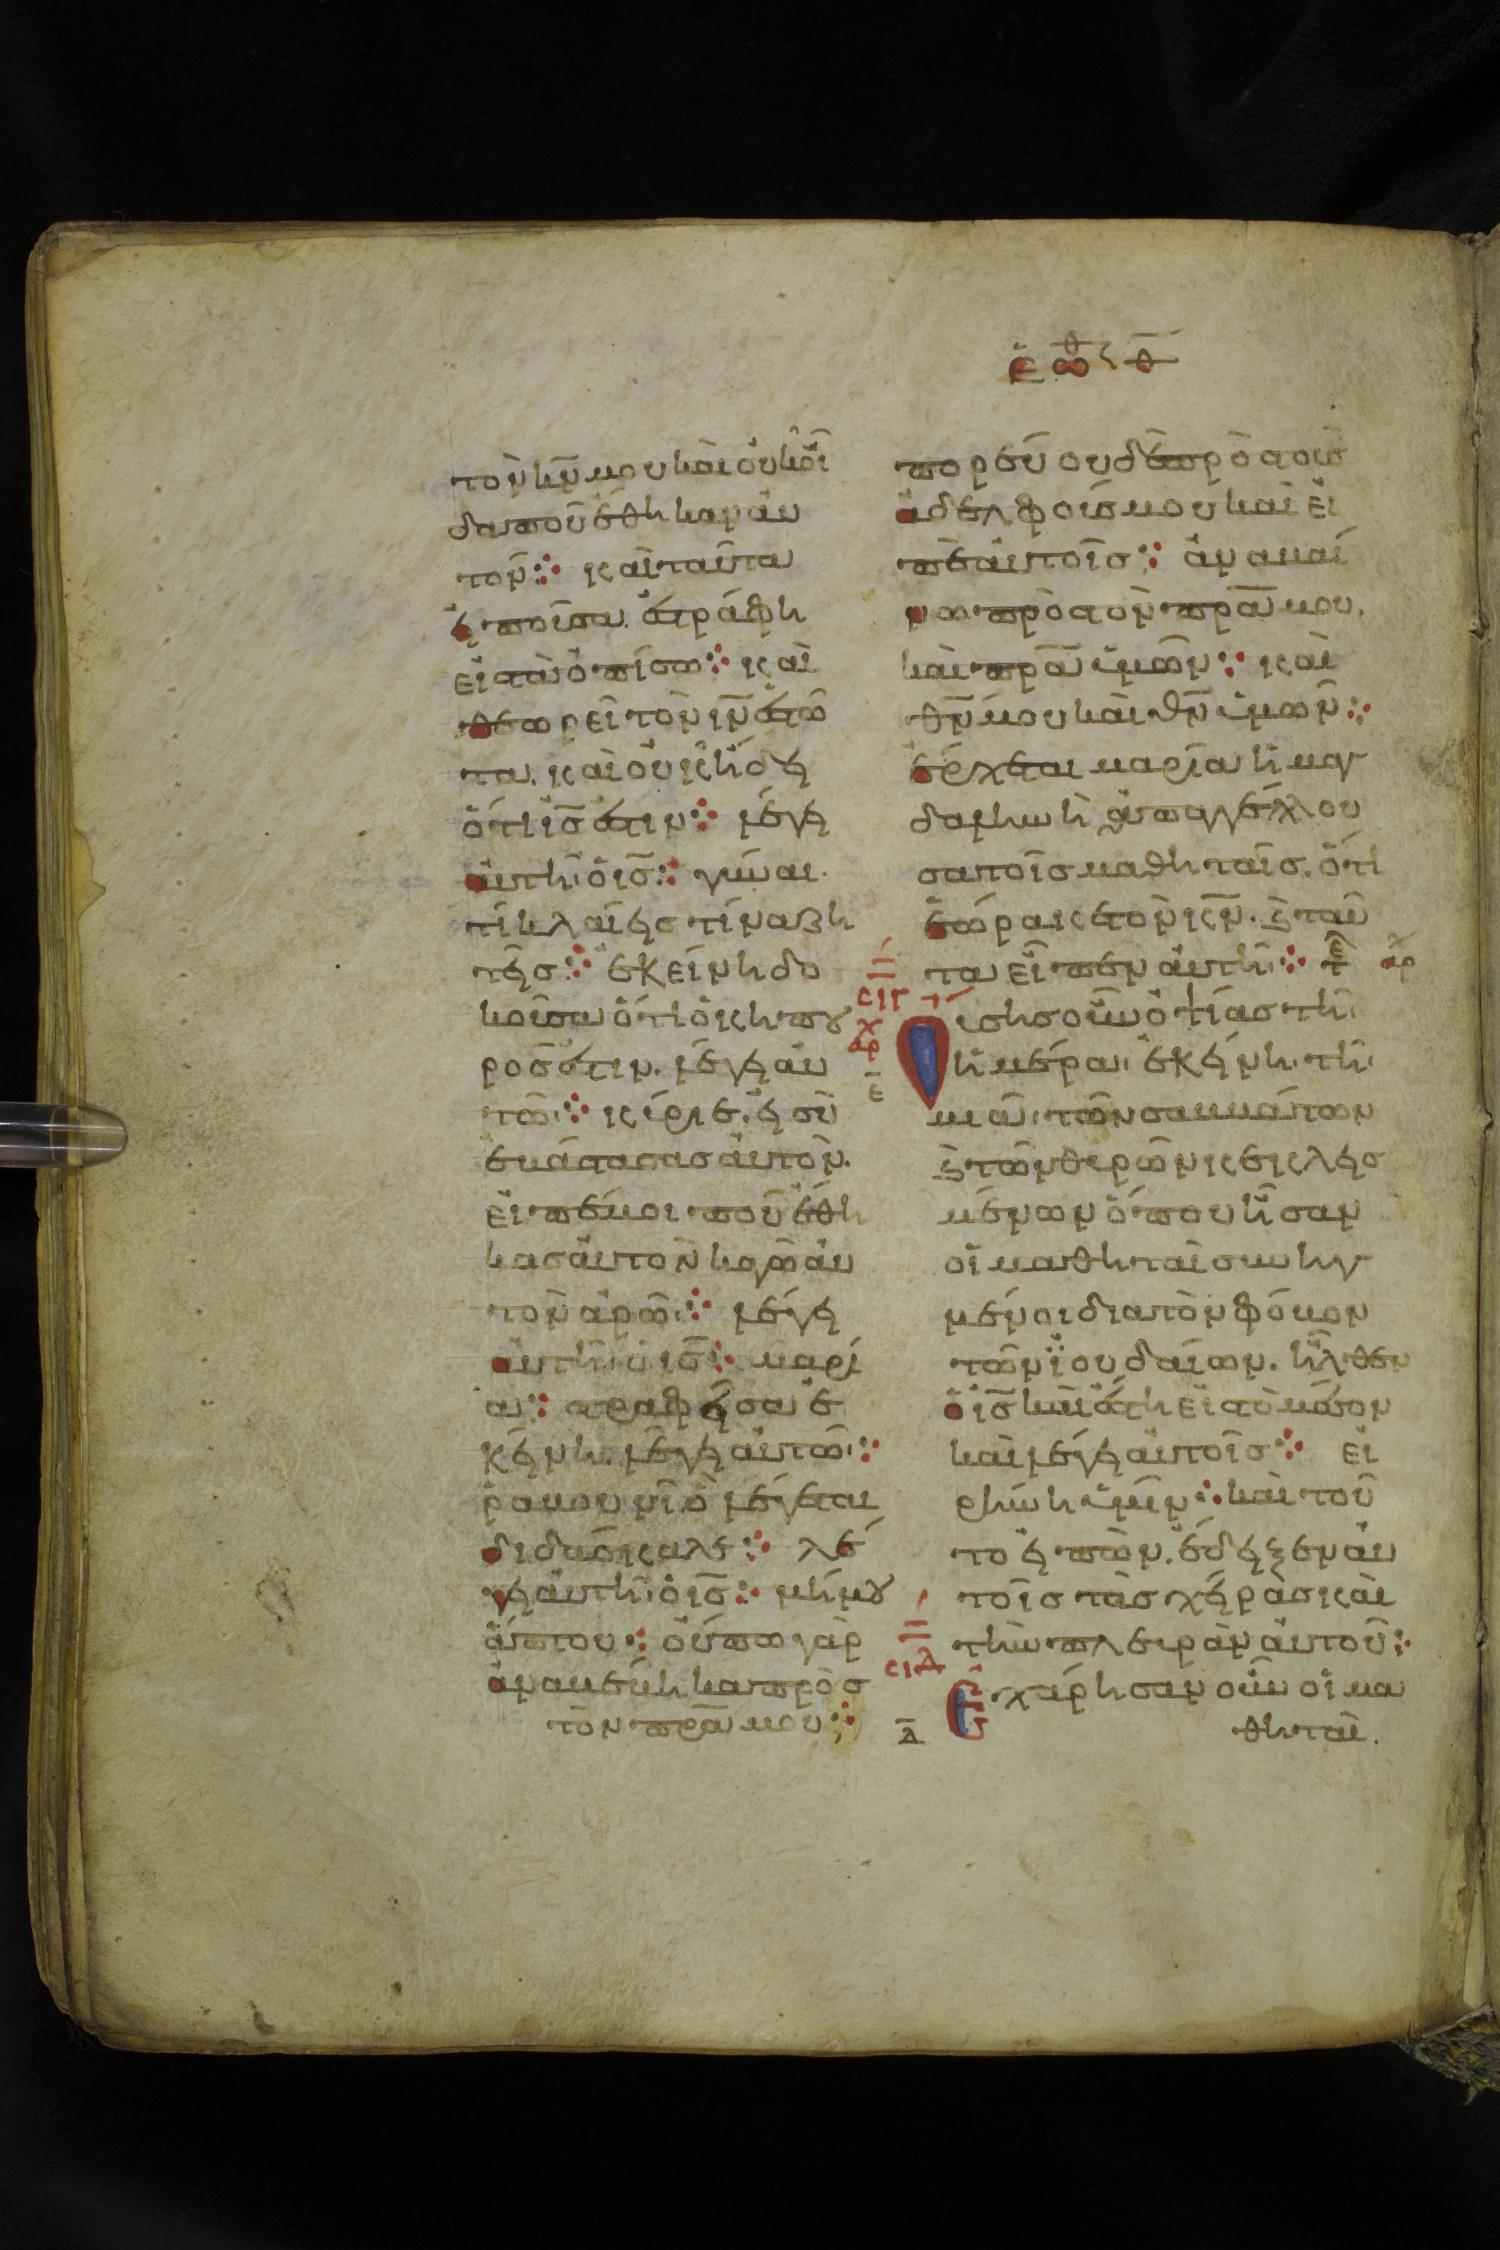 ἑωθ θ
τὸν κν̅ μου καὶ οὐκ οἶ
δα ποῦ ἔθηκαν αὐ
τόν⁘ καὶ ταῦτα
ἠποῦσα. ἐστράφη
εἰς τὰ ὀπίσω⁘ καὶ
θεωρεῖ τὸν ιν̅ ἐστῶ
τα. καὶ οὐκ ἤδη
ὅτι ις̅ ἐστιν⁘ λέγη
αὐτῆ ὁ ις̅⁘ γύναι.
τί κλαίης τίνα ζη
τῆς⁘ ἐκείνη δο
κοῦσα ὅτι ὁ κηπου
ρος ἐστιν. λέγη αὐ
τῶ⁘ κύριε. ἠ σὺ
ἐβάστασας αὐτὸν.
εἰπέ μοι ποῦ ἔθη
κας αὐτὸν καγὼ αὐ
τὸν ἀρῶ⁘ λέγη
αὐτῆ ὁ ις̅⁘ μαρί
α⁘ στραφῆσα ἐ
κήνη. λέγη αὐτῶ⁘
ῥαβουνὶ ὃ λέγεται
διδάσκαλε⁘ λέ
γη αὐτῆ ὁ ις̅⁘ μή μου
ἅπτου⁘ οὔπω γὰρ
ἀναβέβηκα πρὸς
τὸν πρα̅ μου⁘
πορεύου δὲ πρὸς τοὺς
ἀδελφούς μου καὶ εἰ
πὲ αὐτοῖς⁘ ἀναβαί
νω πρὸς τὸν πρα̅ μου.
καὶ πρα̅ ὑμῶν⁘ καὶ
θν̅ μου καὶ θν̅ ὑμῶν⁘
ἔρχεται μαρία ἡ μαγ
δαληνὴ ἀπαγγέλλου
σα τοῖς μαθηταῖς. ὅτι
ἑώρακε τὸν κν̅. ϗ ταῦ
τα εἶπεν αὐτῆ⁘ τελ
αρχ
σιγ
ι
αρχ
ε
Οὔσης οὖν ὀψίας τῆ
ἡμέρα ἐκήνη. τῆ
μιᾶ. τῶν σαββάτων
ϗ τῶν θυρῶν κεκλησ
μένων ὅπου ἦσαν
οἱ μαθηταὶ συνηγ
μένοι διὰ τὸν φόβον
τῶν ἰουδαίων. ἦλθεν
ὁ ις̅ καὶ ἔστη εἰς τὸ μέσον
καὶ λέγη αὐτοῖς⁘ εἰ
ρήνη ὑμῖν⁘ καὶ τοῦ
το ἠπὼν. ἔδηξεν αὐ
τοῖς τὰς χήρας καὶ
τὴν πλευρὰν αὐτοῦ⁘
σιδ
ι
δ
Ἐχάρησαν οὖν οἱ μα
θηταὶ.